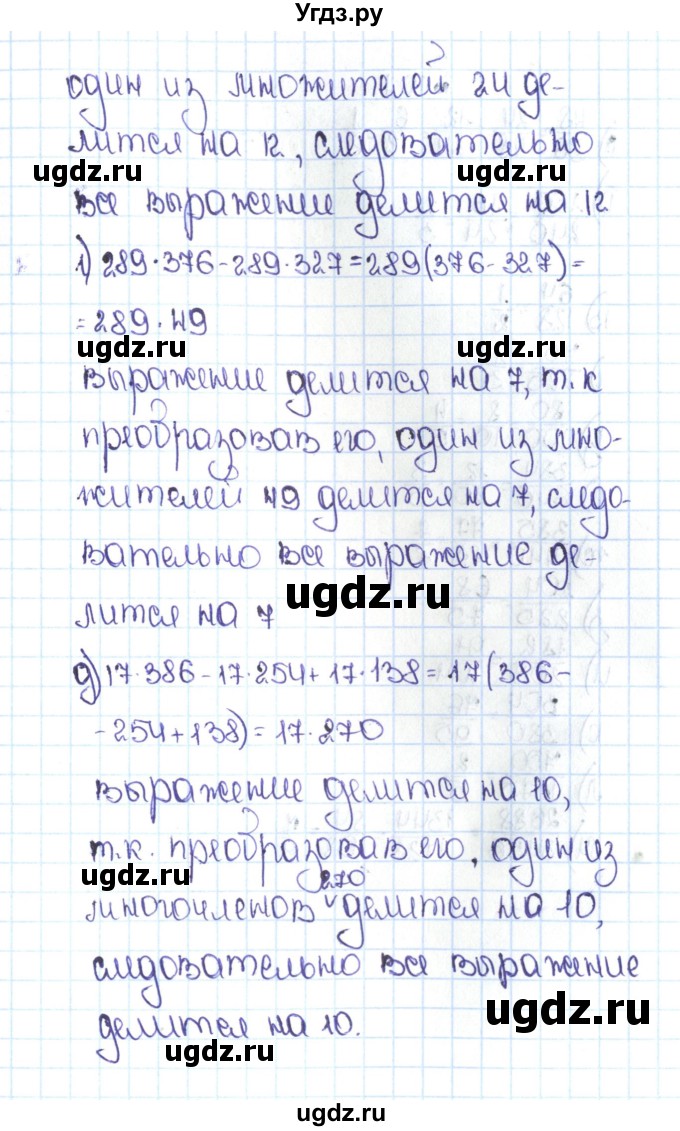 Угдз.ру
один из множителей 24 де-
лится на 12, следовательно
ugdz.ru ugdz.ru
все выражение делится на 12
1) 289·376-289·327=289(376-327)=
=289·49
ugdz.ru ugdz.ru
выражение делится на 7, т.к
преобразовав его, один из мно-
жителей 49 делится на 7, следо-
вательно все выражение де-
ugdz.ru
лится на 7
g) 17·386-17·254+17·138=17(386-
-254+138)=17·270
выражение делится на 10,
т.к. преобразовав его, один из
ugdz.ru
270
многочленов ˅ делится на 10,
следовательно все выражение
ugdz.ru
делится на 10.
ugdz.ru
ugdz.ru